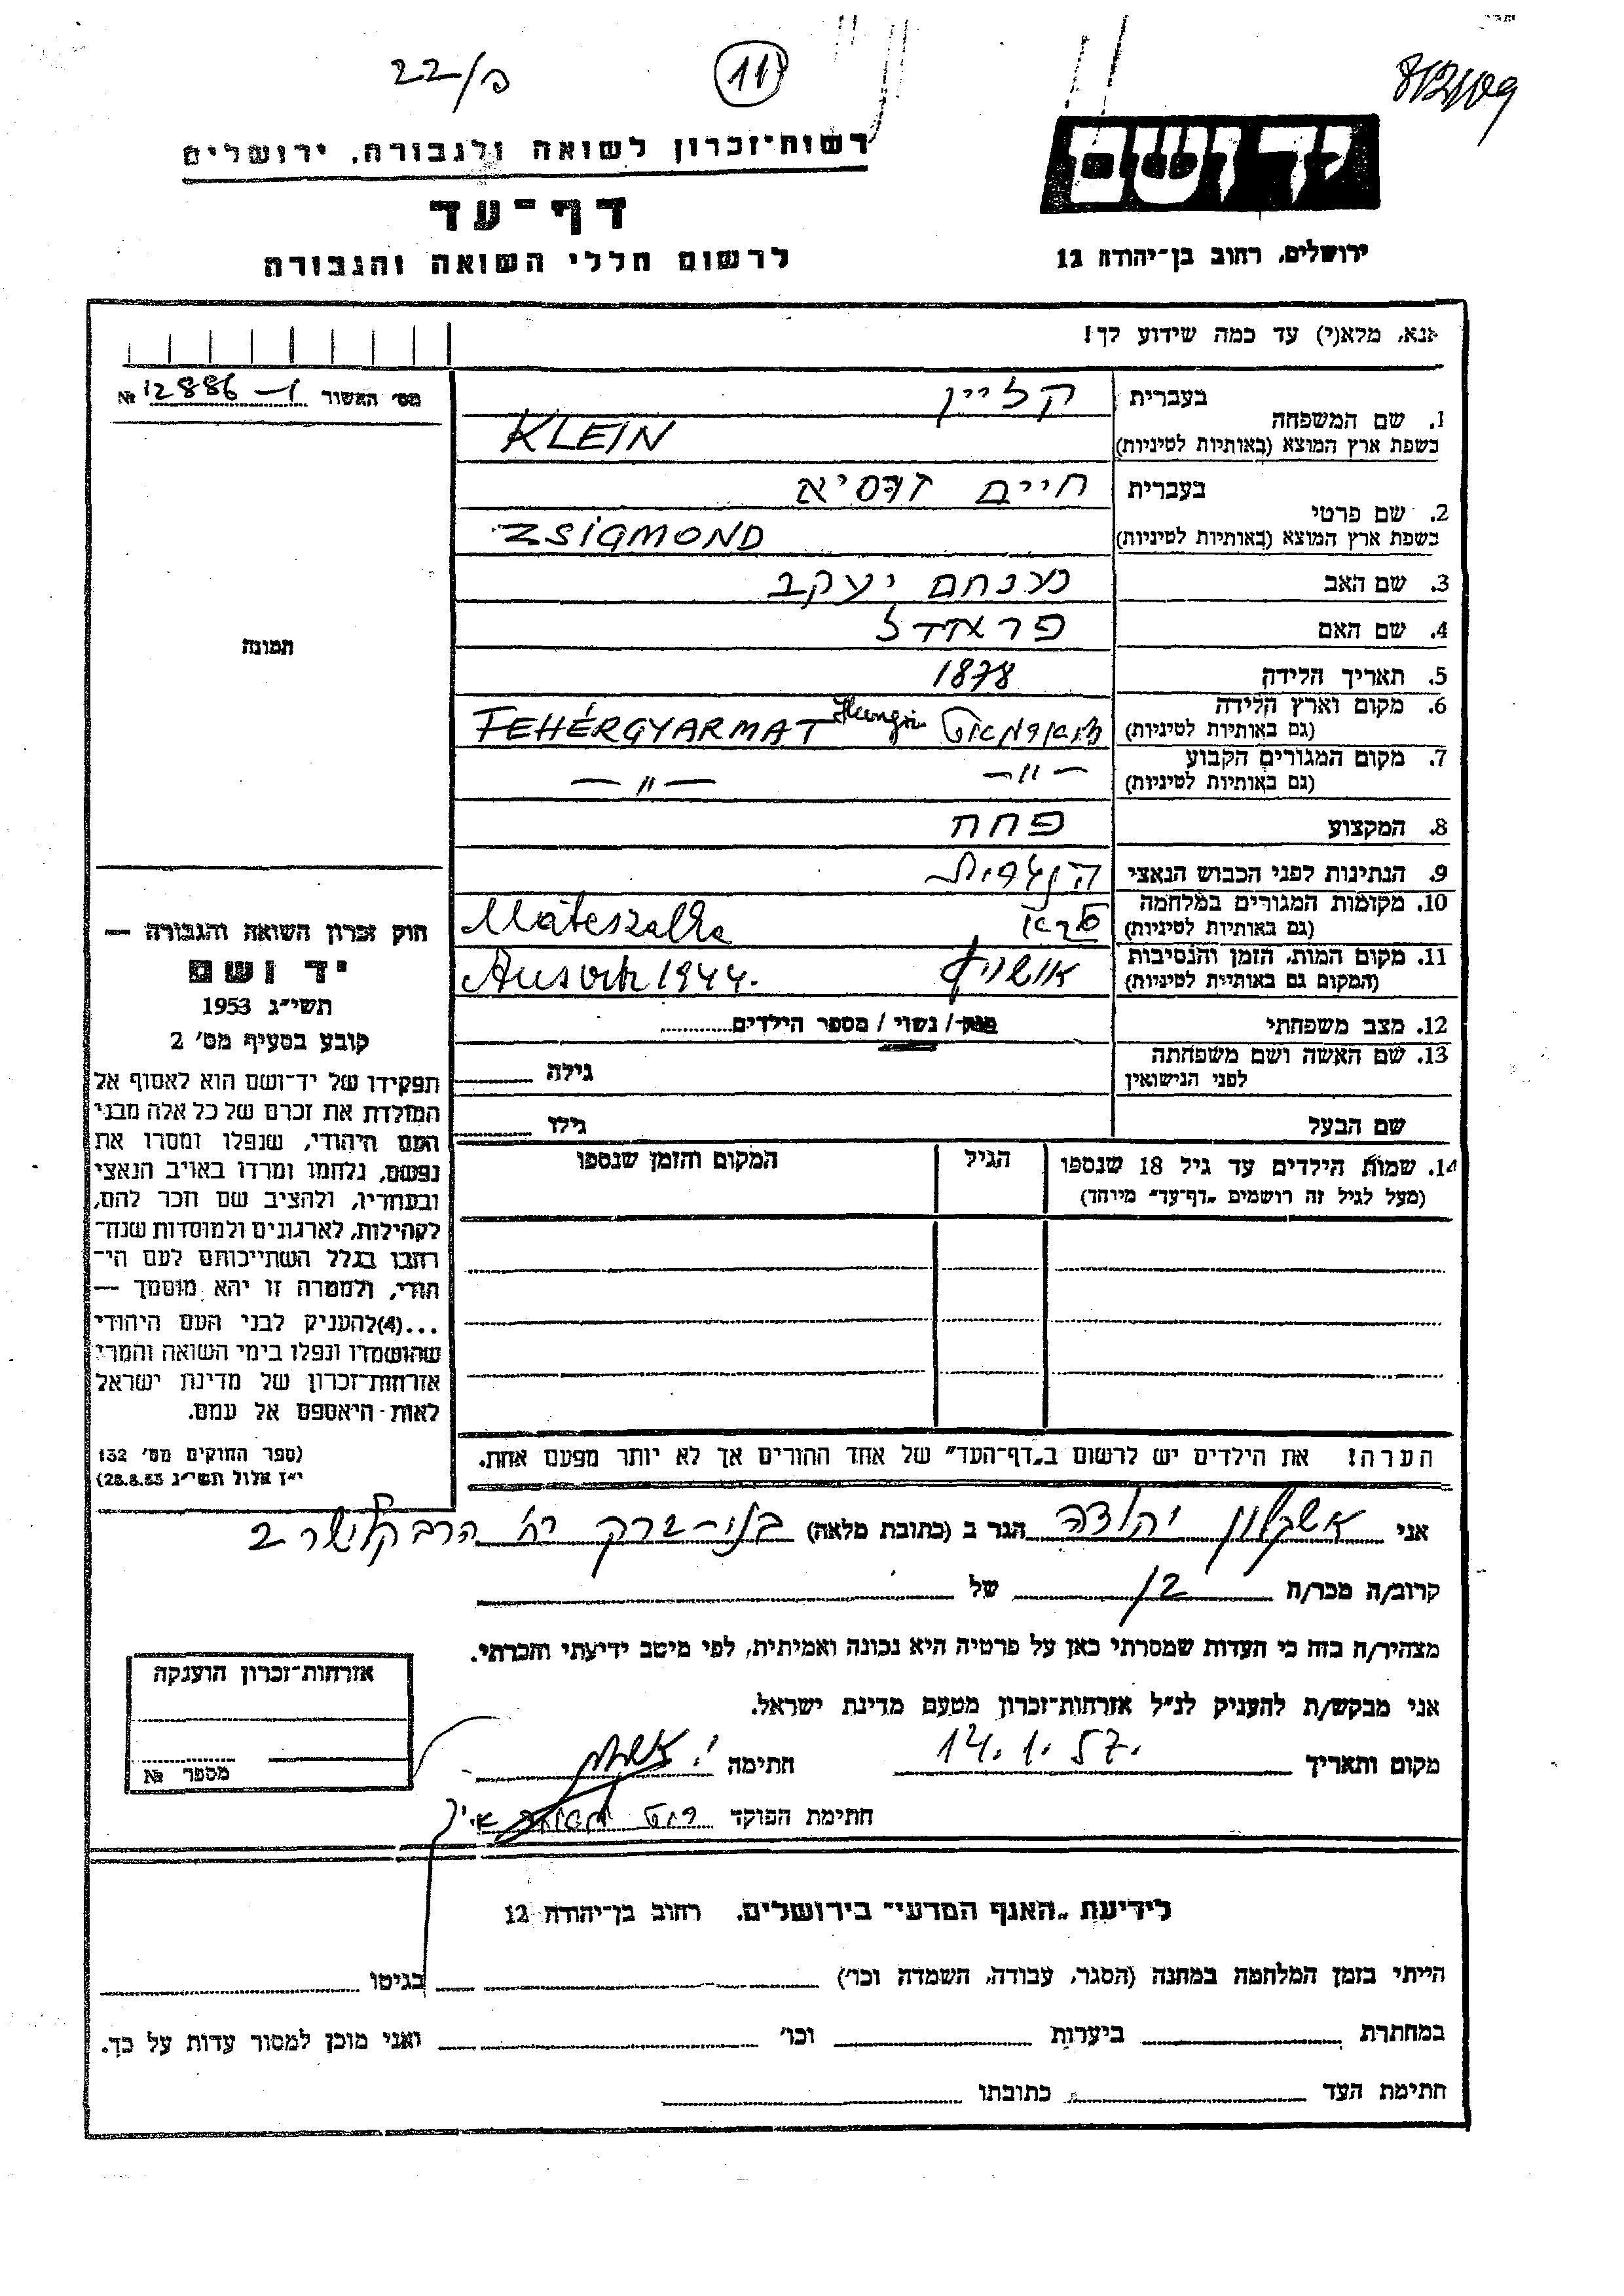 22/פ
11
812/109
יד ושם
ירושלים, רחוב בן־יהודה 12
רשות־זכרון לשואה ולגבורה, ירושלים
דף־עד
לרשום חללי השואה והגבורה
אנא, מלא(י) עד כמה שידוע לך!
מס׳ האשור № 12886
1. שם המשפחה
בעברית קליין
בשפת ארץ המוצא (באותיות לטיניות) KLEIN
2. שם פרטי
בעברית חיים
בשפת ארץ המוצא (באותיות לטיניות) ZSIGMOND
3. שם האב מנחם יעקב
4. שם האם
5. תאריך הלידה 1878
6. מקום וארץ הלידה
(גם באותיות לטיניות) FEHÉRGYARMAT
7. מקום המגורים הקבוע
(גם באותיות לטיניות) —״— —״—
8. המקצוע פחח
9. הנתינות לפני הכבוש הנאצי הונגרית
10. מקומות המגורים במלחמה
(גם באותיות לטיניות) Máteszalka
11. מקום המות, הזמן והנסיבות
(המקום גם באותיות לטיניות) אושויץ Ausvitz 1944.
12. מצב משפחתי רווק / נשוי / מספר הילדים
13. שם האשה ושם משפחתה
לפני הנישואין גילה
שם הבעל גילו
14. שמות הילדים עד גיל 18 שנספו
(מעל לגיל זה רושמים „דף־עד״ מיוחד)
הגיל
המקום והזמן שנספו
תמונה
חוק זכרון השואה והגבורה —
יד ושם
תשי״ג 1953
קובע בסעיף מס׳ 2
תפקידו של יד־ושם הוא לאסוף אל
המולדת את זכרם של כל אלה מבני
העם היהודי, שנפלו ומסרו את
נפשם, נלחמו ומרדו באויב הנאצי
ובעוזריו, ולהציב שם וזכר להם,
לקהילות, לארגונים ולמוסדות שנח־
רבו בגלל השתייכותם לעם הי־
הודי, ולמטרה זו יהא מוסמך —
...(4) להעניק לבני העם היהודי
שהושמדו ונפלו בימי השואה והמרי
אזרחות־זכרון של מדינת ישראל
לאות היאספם אל עמם.
(ספר החוקים מס׳ 132
י״ז אלול תשי״ג 28.8.53)
הערה! את הילדים יש לרשום ב„דף־העד״ של אחד ההורים אך לא יותר מפעם אחת.
אני אשכנזי יהודה הגר ב (כתובת מלאה) בני־ברק רח׳ הרב קלישר 2
קרוב/ה מכר/ה בן של
מצהיר/ה בזה כי העדות שמסרתי כאן על פרטיה היא נכונה ואמיתית, לפי מיטב ידיעתי והכרתי.
אני מבקש/ת להעניק לנ״ל אזרחות־זכרון מטעם מדינת ישראל.
מקום ותאריך 14.1.57. חתימה
חתימת הפוקד
אזרחות־זכרון הוענקה
מספר №
לידיעת „האגף המדעי״ בירושלים, רחוב בן־יהודה 12
הייתי בזמן המלחמה במחנה (הסגר, עבודה, השמדה וכו׳) בגיטו
במחתרת ביערות וכו׳ ואני מוכן למסור עדות על כך.
חתימת העד כתובתו